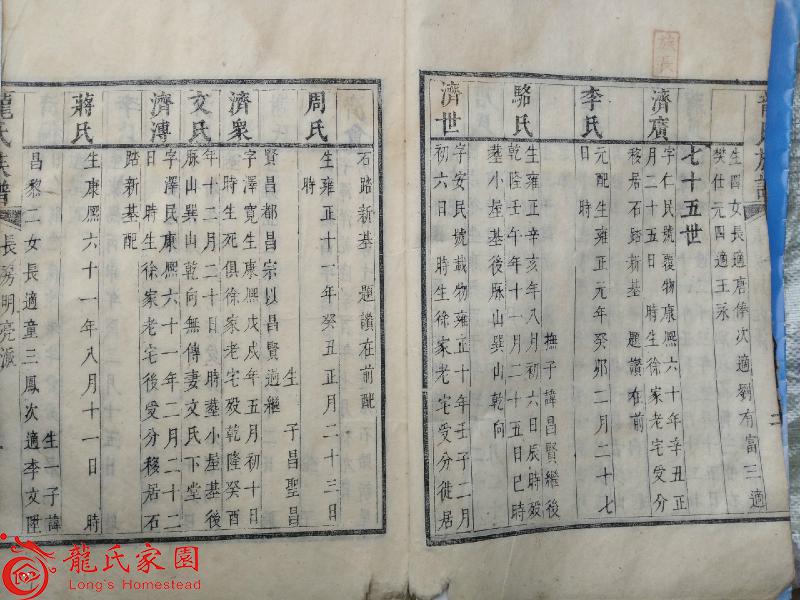 龍氏族譜
二
族長
生四女長適唐俸次適劉有富三適
樊仕元四適王永
七十五世
濟廣
字仁民號覆物康熙六十年辛丑正
月二十五日 時生徐家老宅受分
移居石踏新基 題讚在前
李氏
元配生雍正元年癸卯二月二十七
日 時
撫子諱昌賢繼後
駱氏
生雍正辛亥年八月初六日辰時歿
乾隆壬午年十一月二十五日巳時
葬小屋基後脈山巽山乾向
濟世
字安民號載物雍正十年壬子二月
初六日 時生徐家老宅受分徙居
石踏新基 題讚在前配
周氏
生雍正十一年癸丑正月二十三日
時
生 子昌聖昌
賢昌都昌宗以昌賢過繼
濟衆
字澤寬生康熙戊戌年五月初十日
時生死俱徐家老宅歿乾隆癸酉
年十二月二十日 時葬小屋基後
脈山巽山乾向無傳妻文氏下堂
文氏
濟溥
字澤民康熙六十一年二月二十二
日 時生徐家老宅後受分移居石
踏新基配
蔣氏
生康熙六十一年八月十一日 時
生一子諱
昌黎二女長適童三鳳次適李文陞
龍氏族譜
長房明亮派
龍氏家園
Long's Homestead